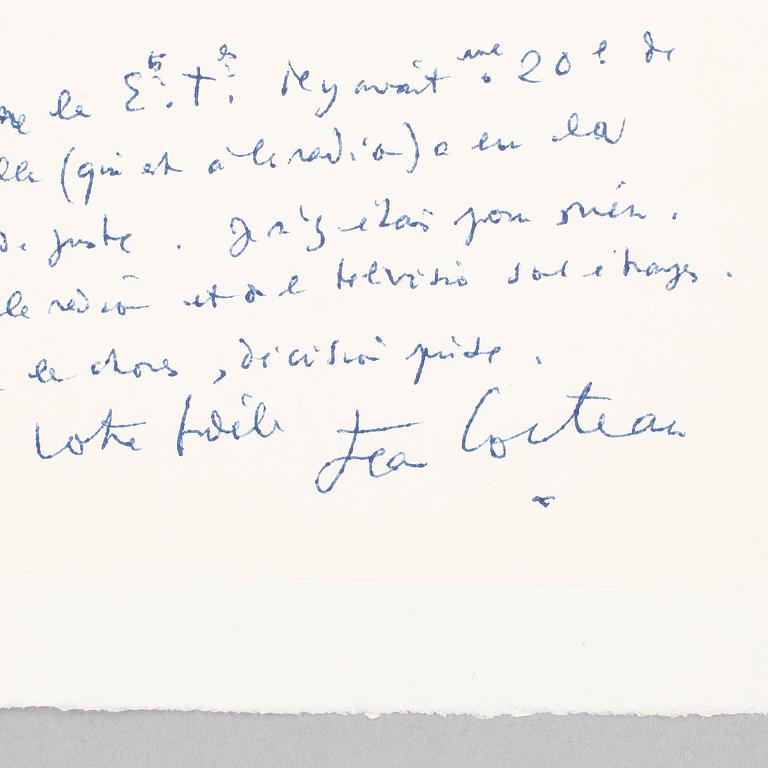 le Éts. Tés. Il y avait une 20e de
(qui est à la radio) a eu la
de juste. Je n'y étais pour rien.
la radio et de la télévision sont étranges.
les choses, décision prise.
Votre fidèle Jean Cocteau